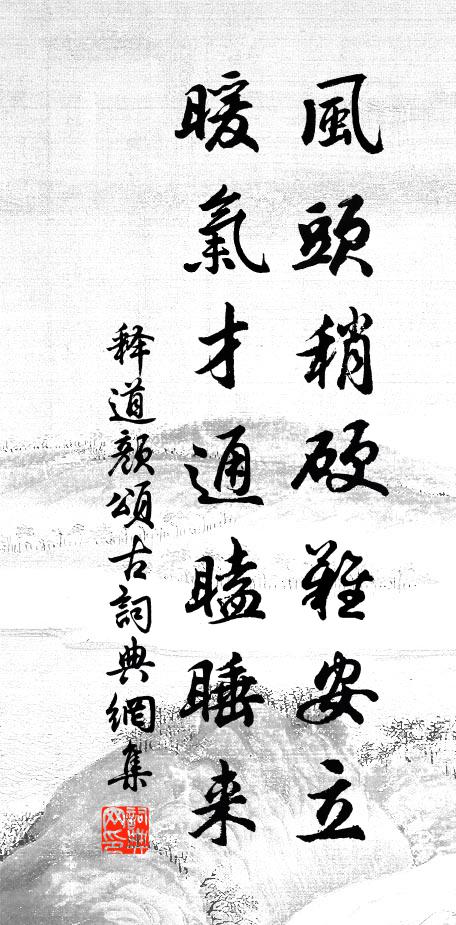 風頭稍硬難安立
暖氣才通瞌睡来
释道顏頌古詞典網集